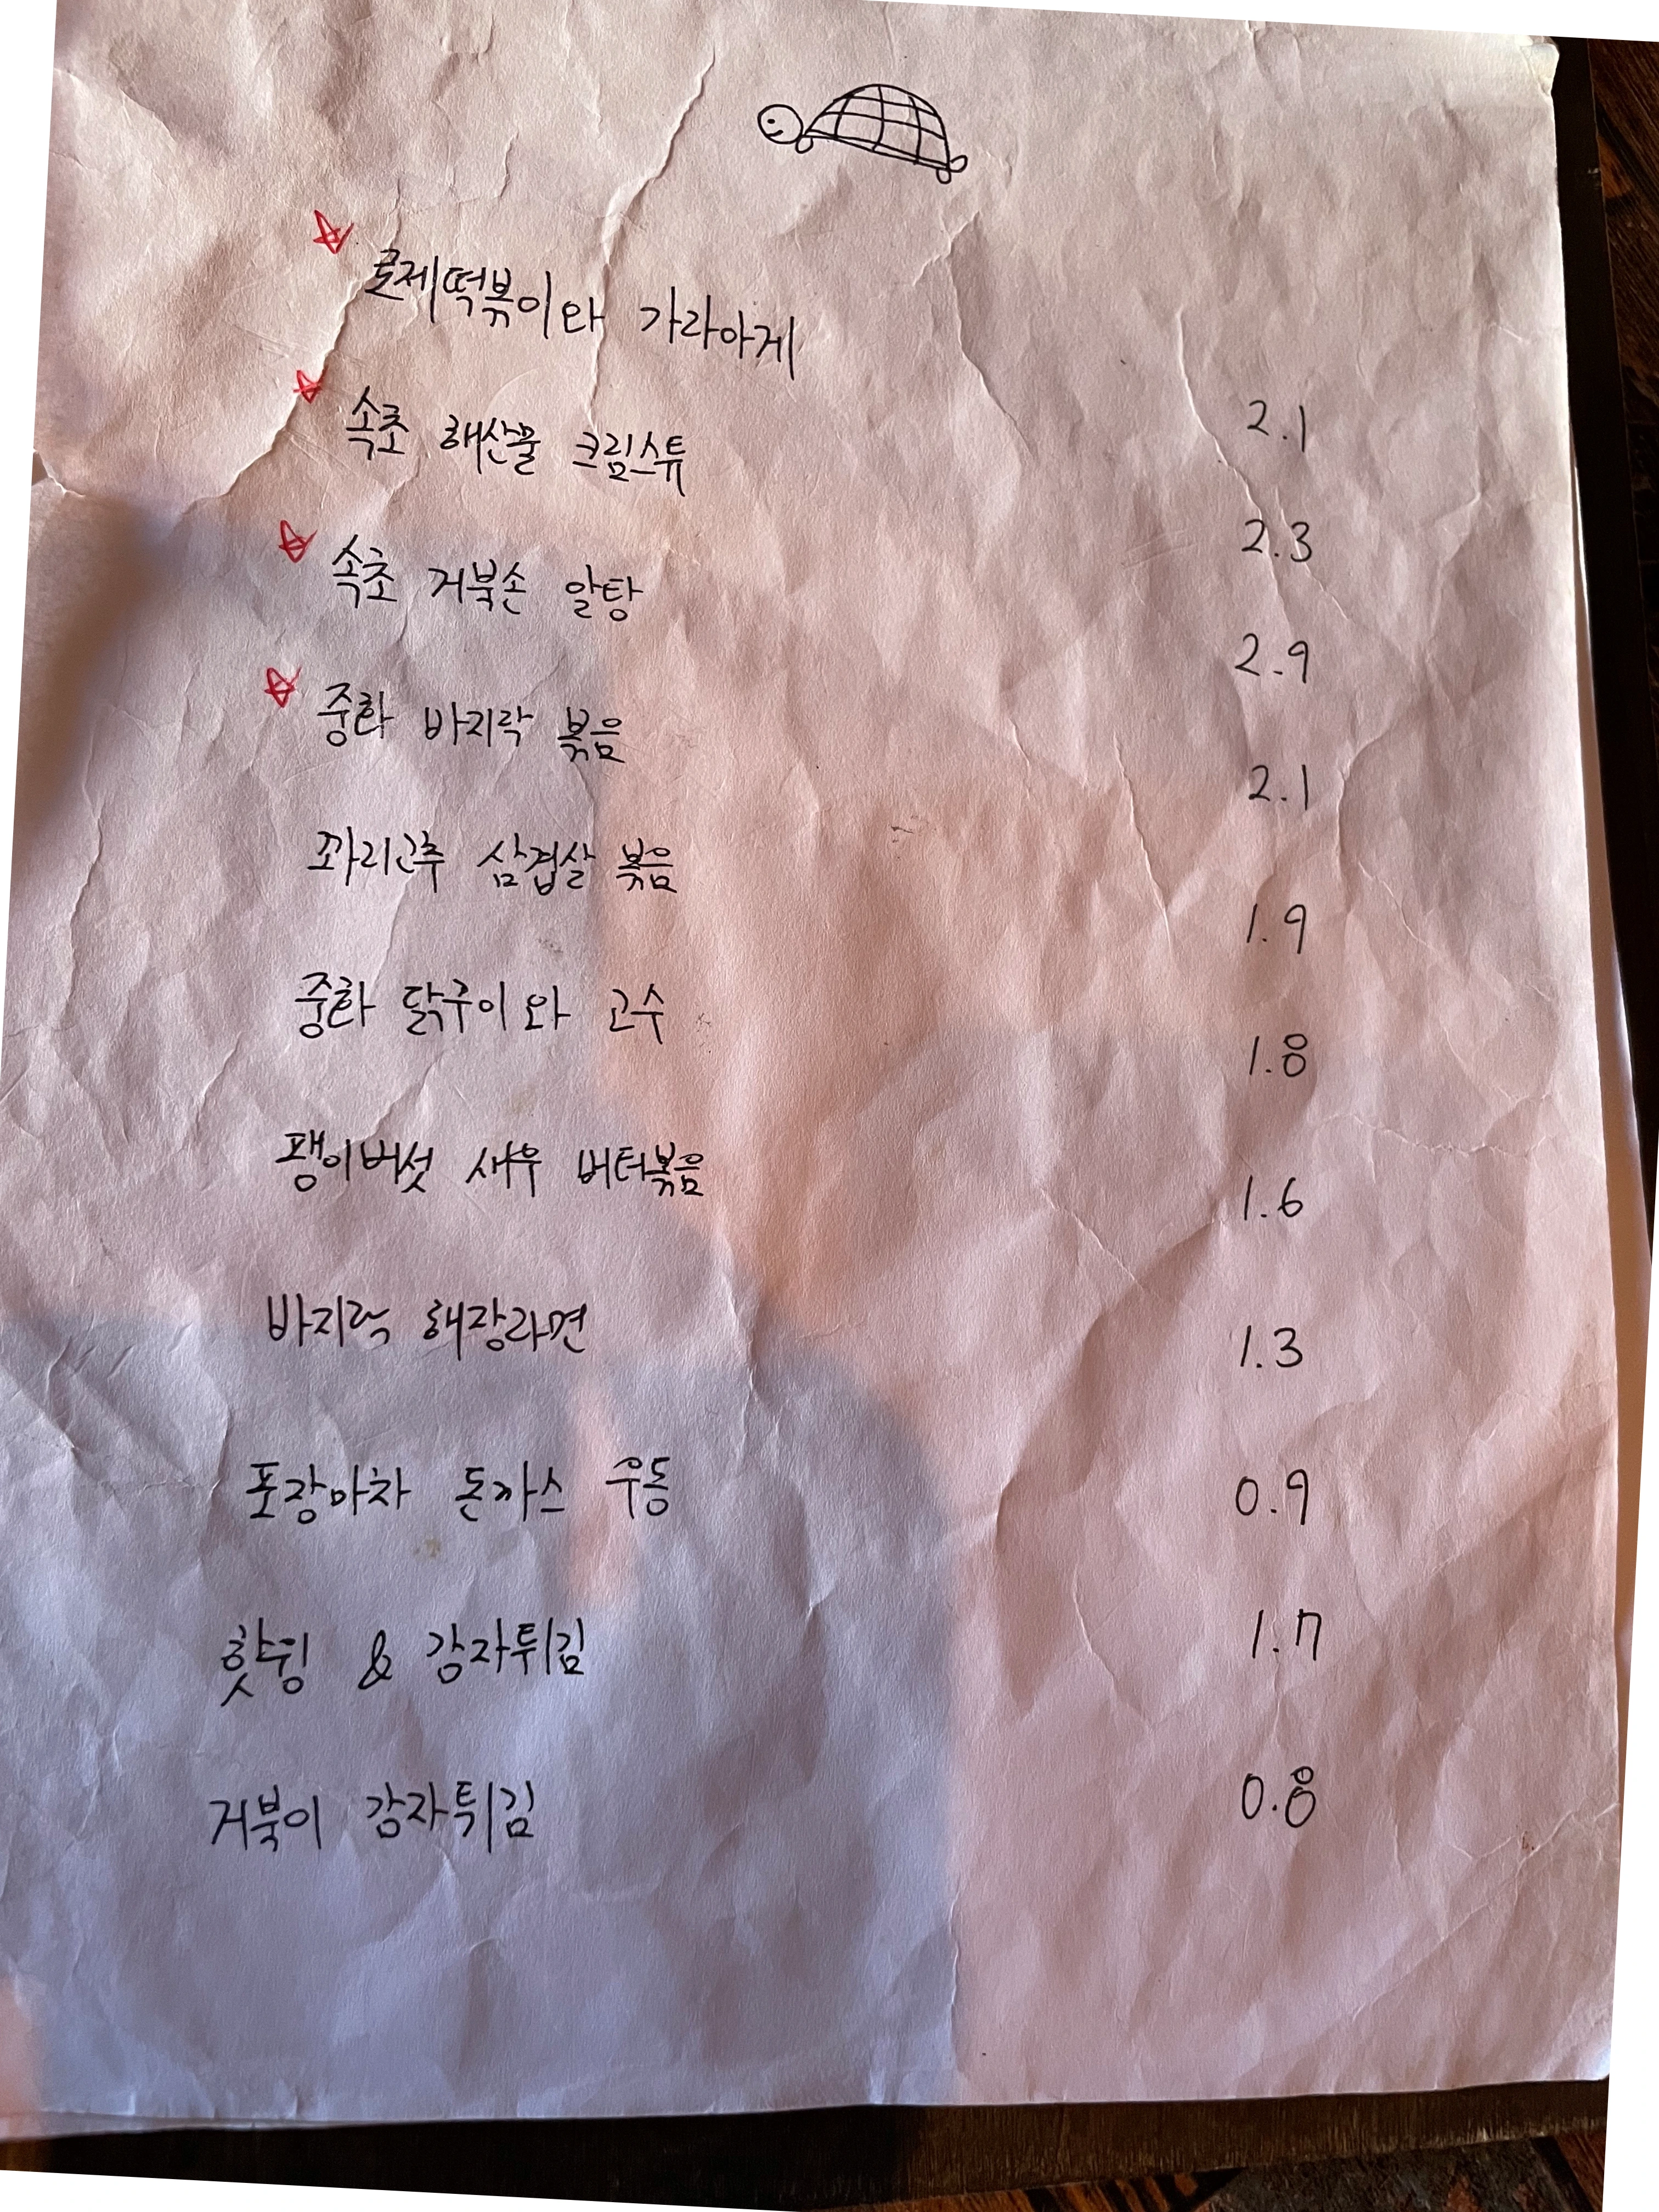 로제떡볶이와 가라아게 2.1
속초 해산물 크림스튜 2.3
속초 거북손 알탕 2.9
중화 바지락 볶음 2.1
꽈리고추 삼겹살 볶음 1.9
중화 닭구이와 고수 1.8
팽이버섯 새우 버터볶음 1.6
바지락 해장라면 1.3
포장마차 돈까스 우동 0.9
핫윙 & 감자튀김 1.7
거북이 감자튀김 0.8